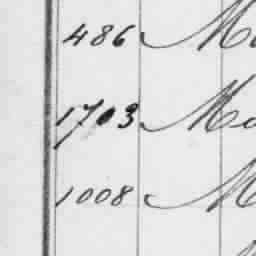 486 M
1703 Mo
1008 M